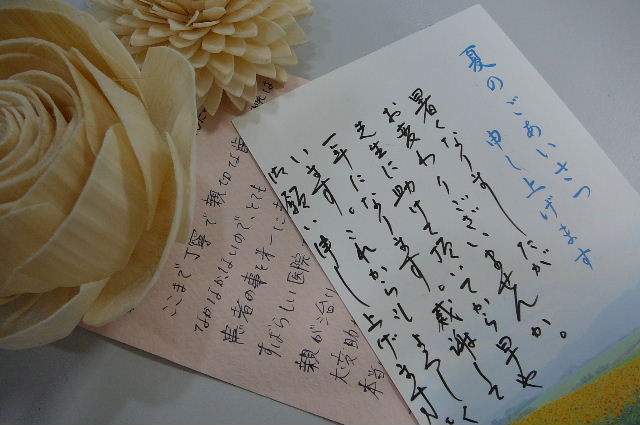 夏のごあいさつ
申し上げます
暑くなりましたが
お変わりございませんか。
先生に助けて頂いてから早や
一年になります。感謝して
います。これからもよろしく
お願い申し上げます
ここまで丁寧で親切な
なかなかないので、とても
患者の事を第一に
すばらしい医院
親が治り
大変助
本当